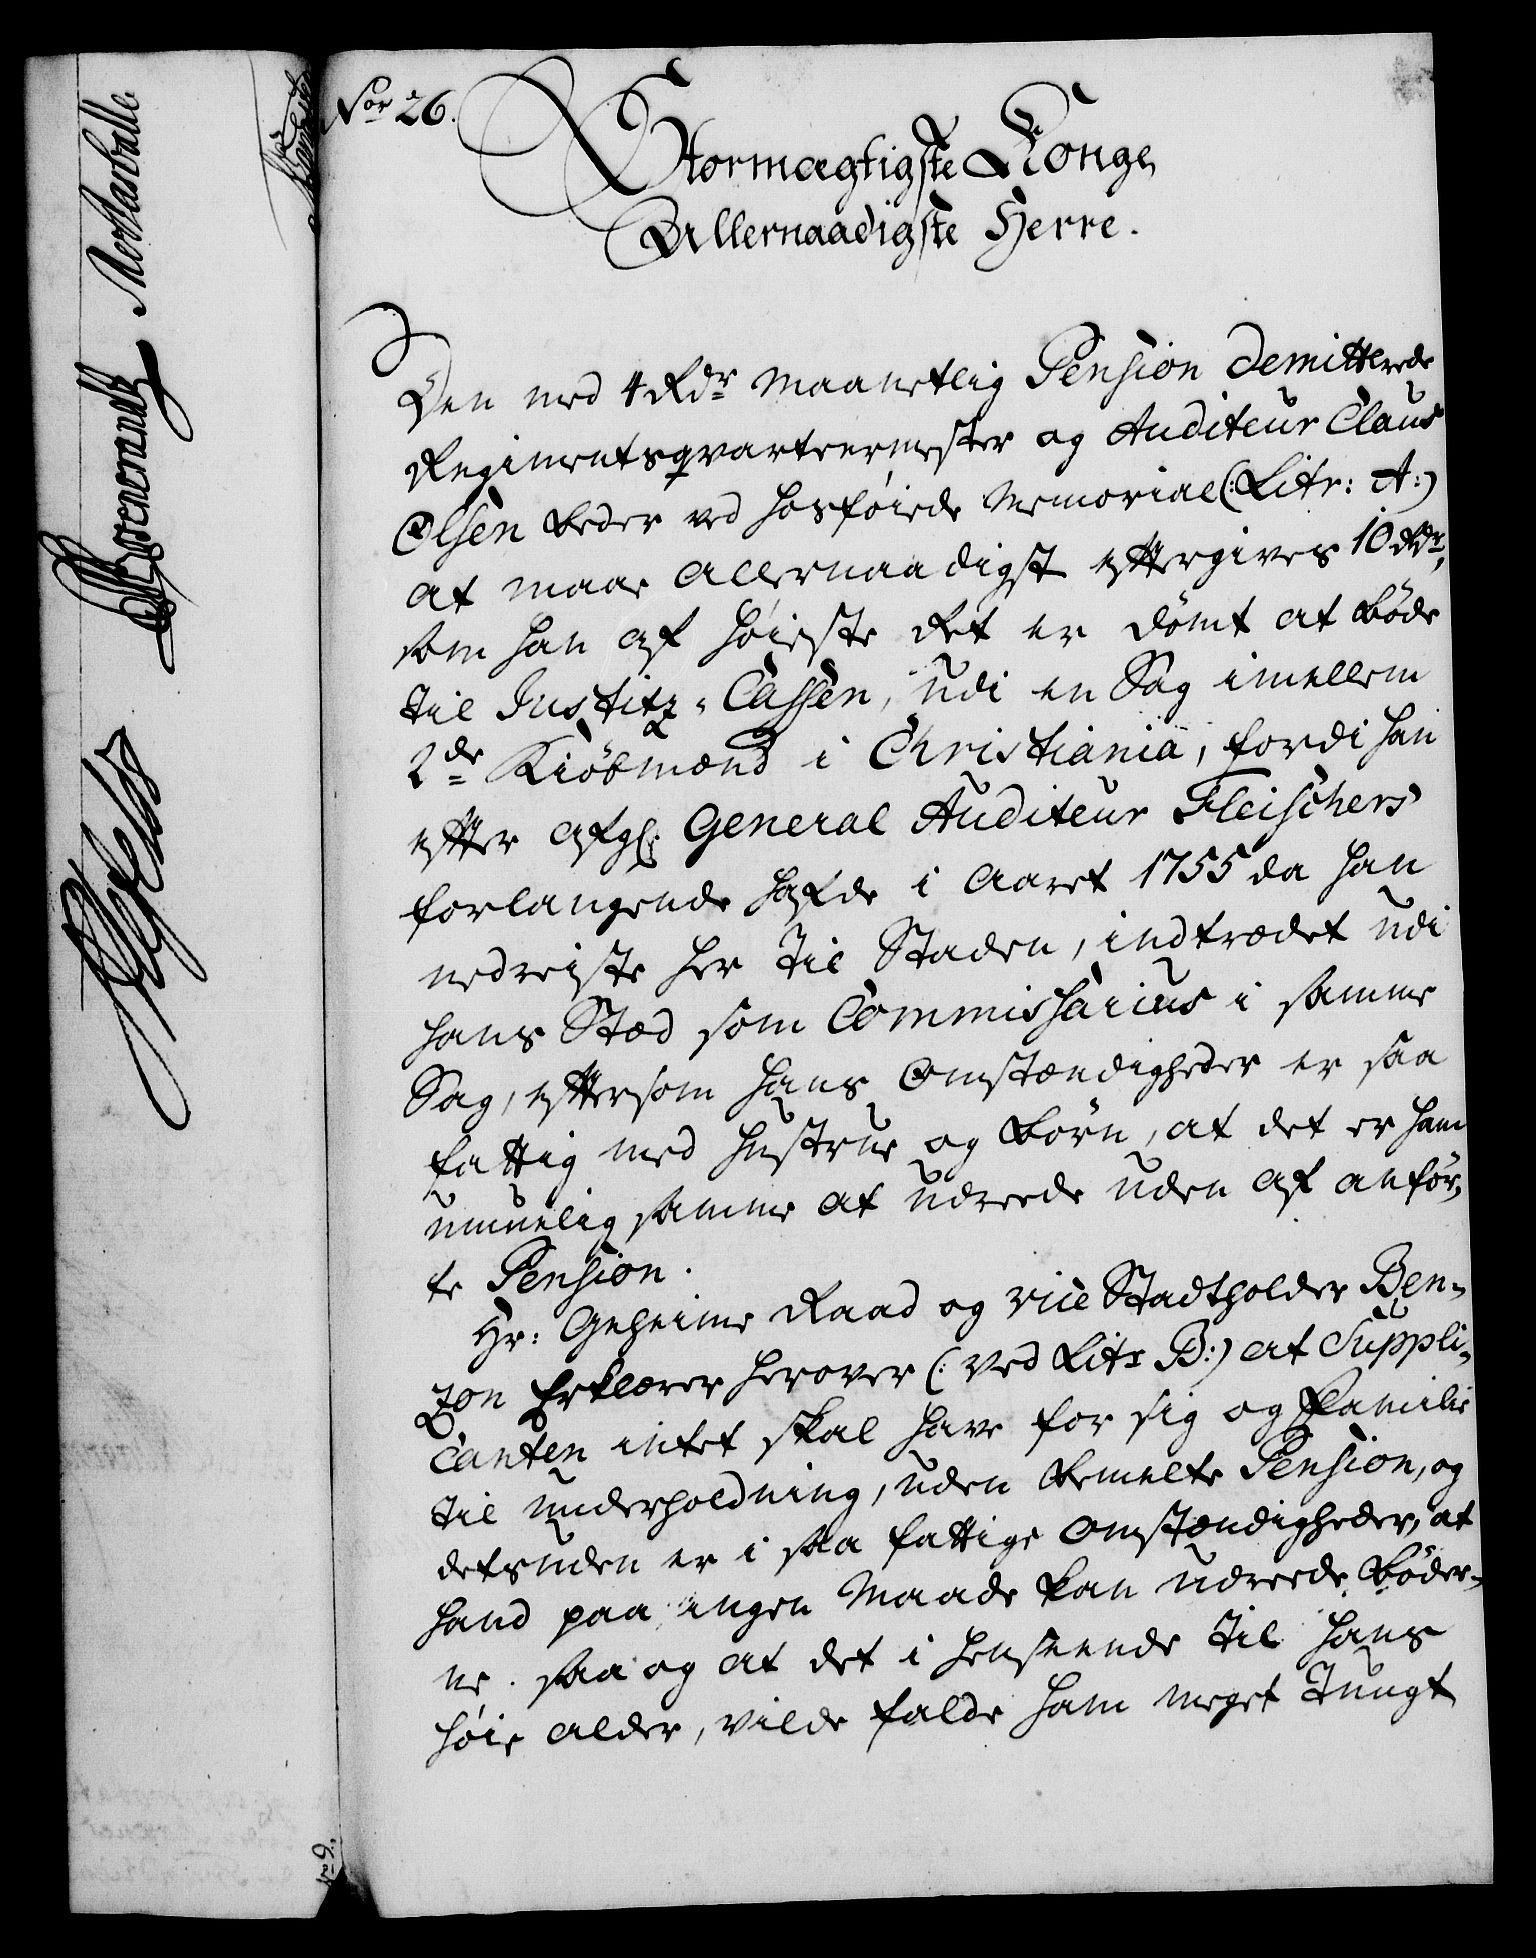 Nor 26.
Stormægtigste Konge,
Allernaadigste Herre.
Den med 4 Rdr maanetlig Pension demitterede
Regimentsqvarteermester og Auditeur Claus
Olsen beder ved hosföiede Memorial (: Litr: A:)
at maae allernaadigst efftergives 10 Rdr,
som han af höieste Ret er dömt at böde
til Justitz-Cassen, udi en Sag imellem
2de Kiöbmænd i Christiania, fordi han
effter afgl: General Auditeur Fleischers
forlangende hafde i Aaret 1755 da han
nedreiste her til Staden, indtrædet udi
hans Stæd som Commissarius i samme
Sag, efftersom hans Omstændigheder er saa
fattig med Hustrue og Börn, at det er ham
umuelig samme at udreede uden af anför-
te Pension.
Hr: Geheime Raad og vice Stadtholder Ben-
zon Erklærer herover (: ved Litr B:) at Suppli-
canten intet skal have for sig og Familie
til underholdning, uden bemelte Pension, og
detsuden er i saa fattige Omstændigheder, at
hand paa ingen Maade kan udreede Böder-
ne. saa og at det i henseende til hans
höie alder, vilde falde ham meget Tungt
No 9.